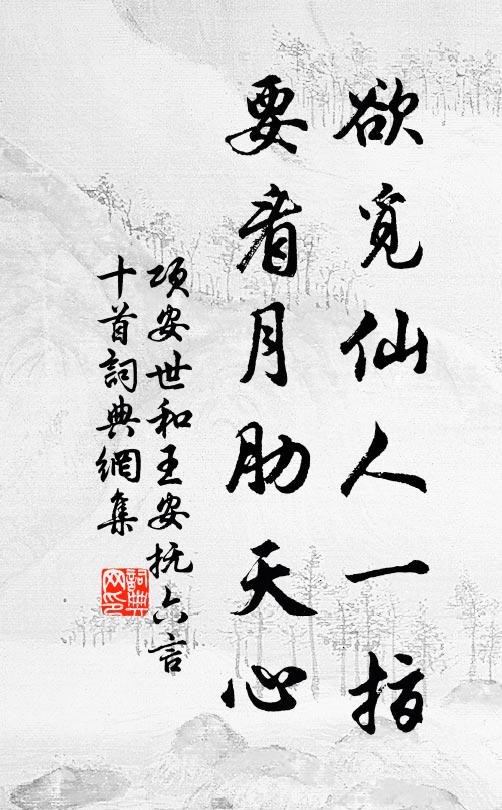 欲觅仙人一指
要看月肋天心
项安世和王安抚六言
十首詞典網集
詞典
网印